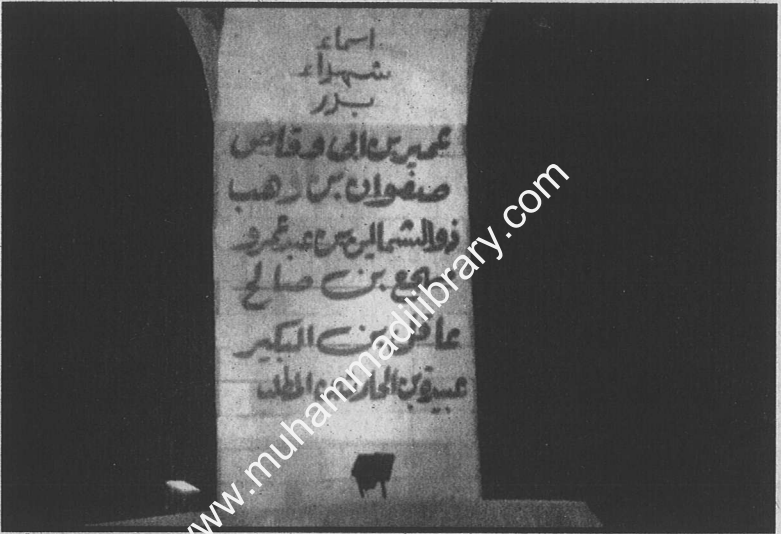 اسماء
شهداء
بدر
عمير بن ابي وقاص
صفوان بن وهب
ذو الشمالين بن عبد عمرو
مهجع بن صالح
عاقل بن البكير
عبيدة بن الحارث المطلب
www.muhammadilibrary.com